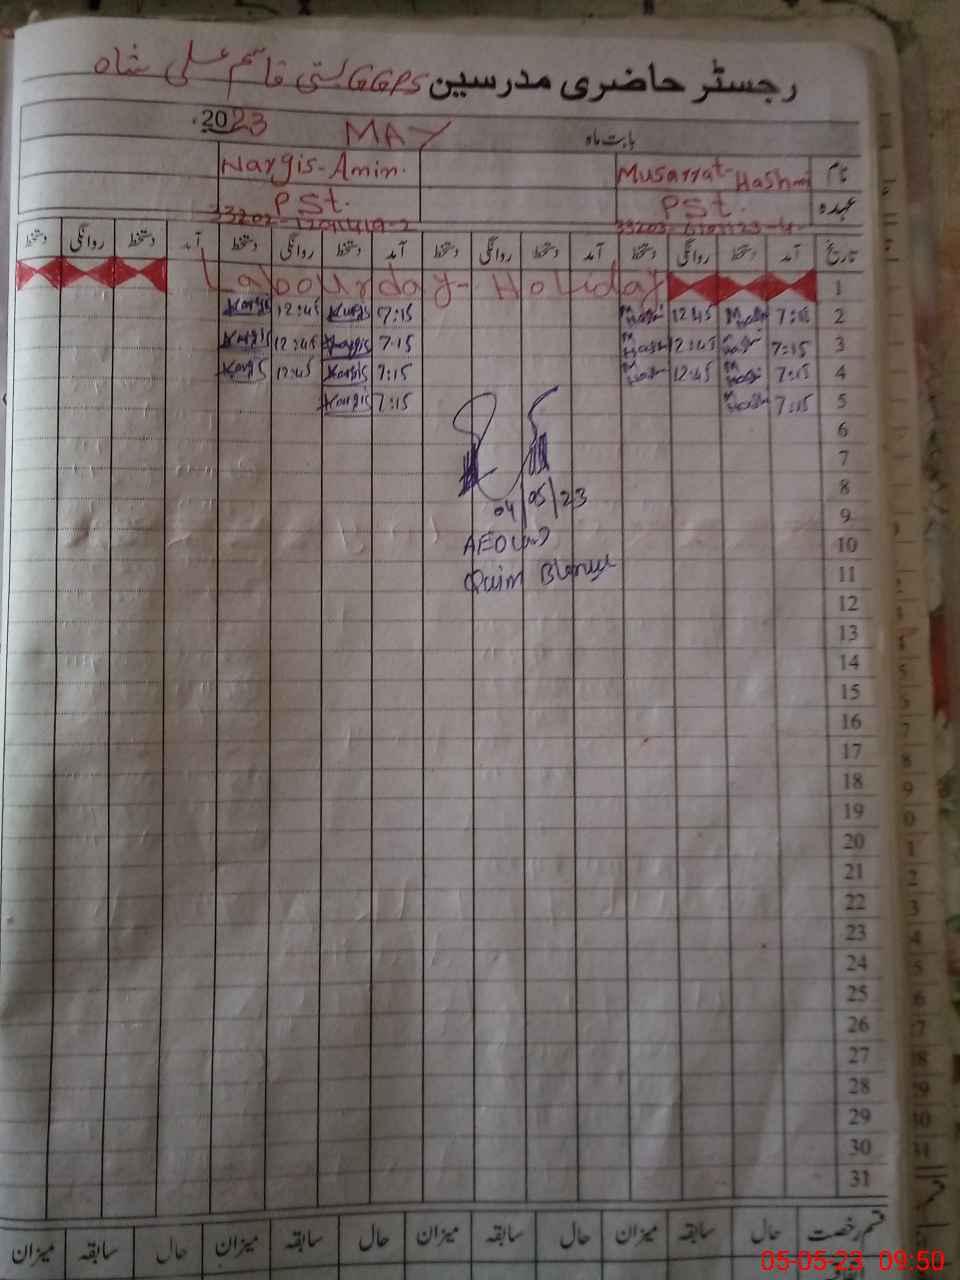 رجسٹر حاضری مدرسین GGPS بستی قاسم علی شاہ
بابت ماہ MAY 2023
نام Musarrat-Hashmi Nargis-Amin.
عہدہ PSt. PSt.
تاریخ آمد دستخط روانگی دستخط آمد دستخط روانگی دستخط آمد دستخط روانگی دستخط آمد دستخط روانگی دستخط
1 Labour day- Holiday
2 7:15 12:45 7:15 Nargis 12:45 Nargis
3 7:15 12:45 7:15 Nargis 12:45 Nargis
4 7:15 12:45 7:15 Nargis 12:45 Nargis
5 7:15 7:15 Nargis
6
7
8
04/05/23
9
10
AEO
11
Qaim
12
13
14
15
16
17
18
19
20
21
22
23
24
25
26
27
28
29
30
31
قسم رخصت حال سابقہ میزان حال سابقہ میزان حال سابقہ میزان حال سابقہ میزان
05-05-23 09:50